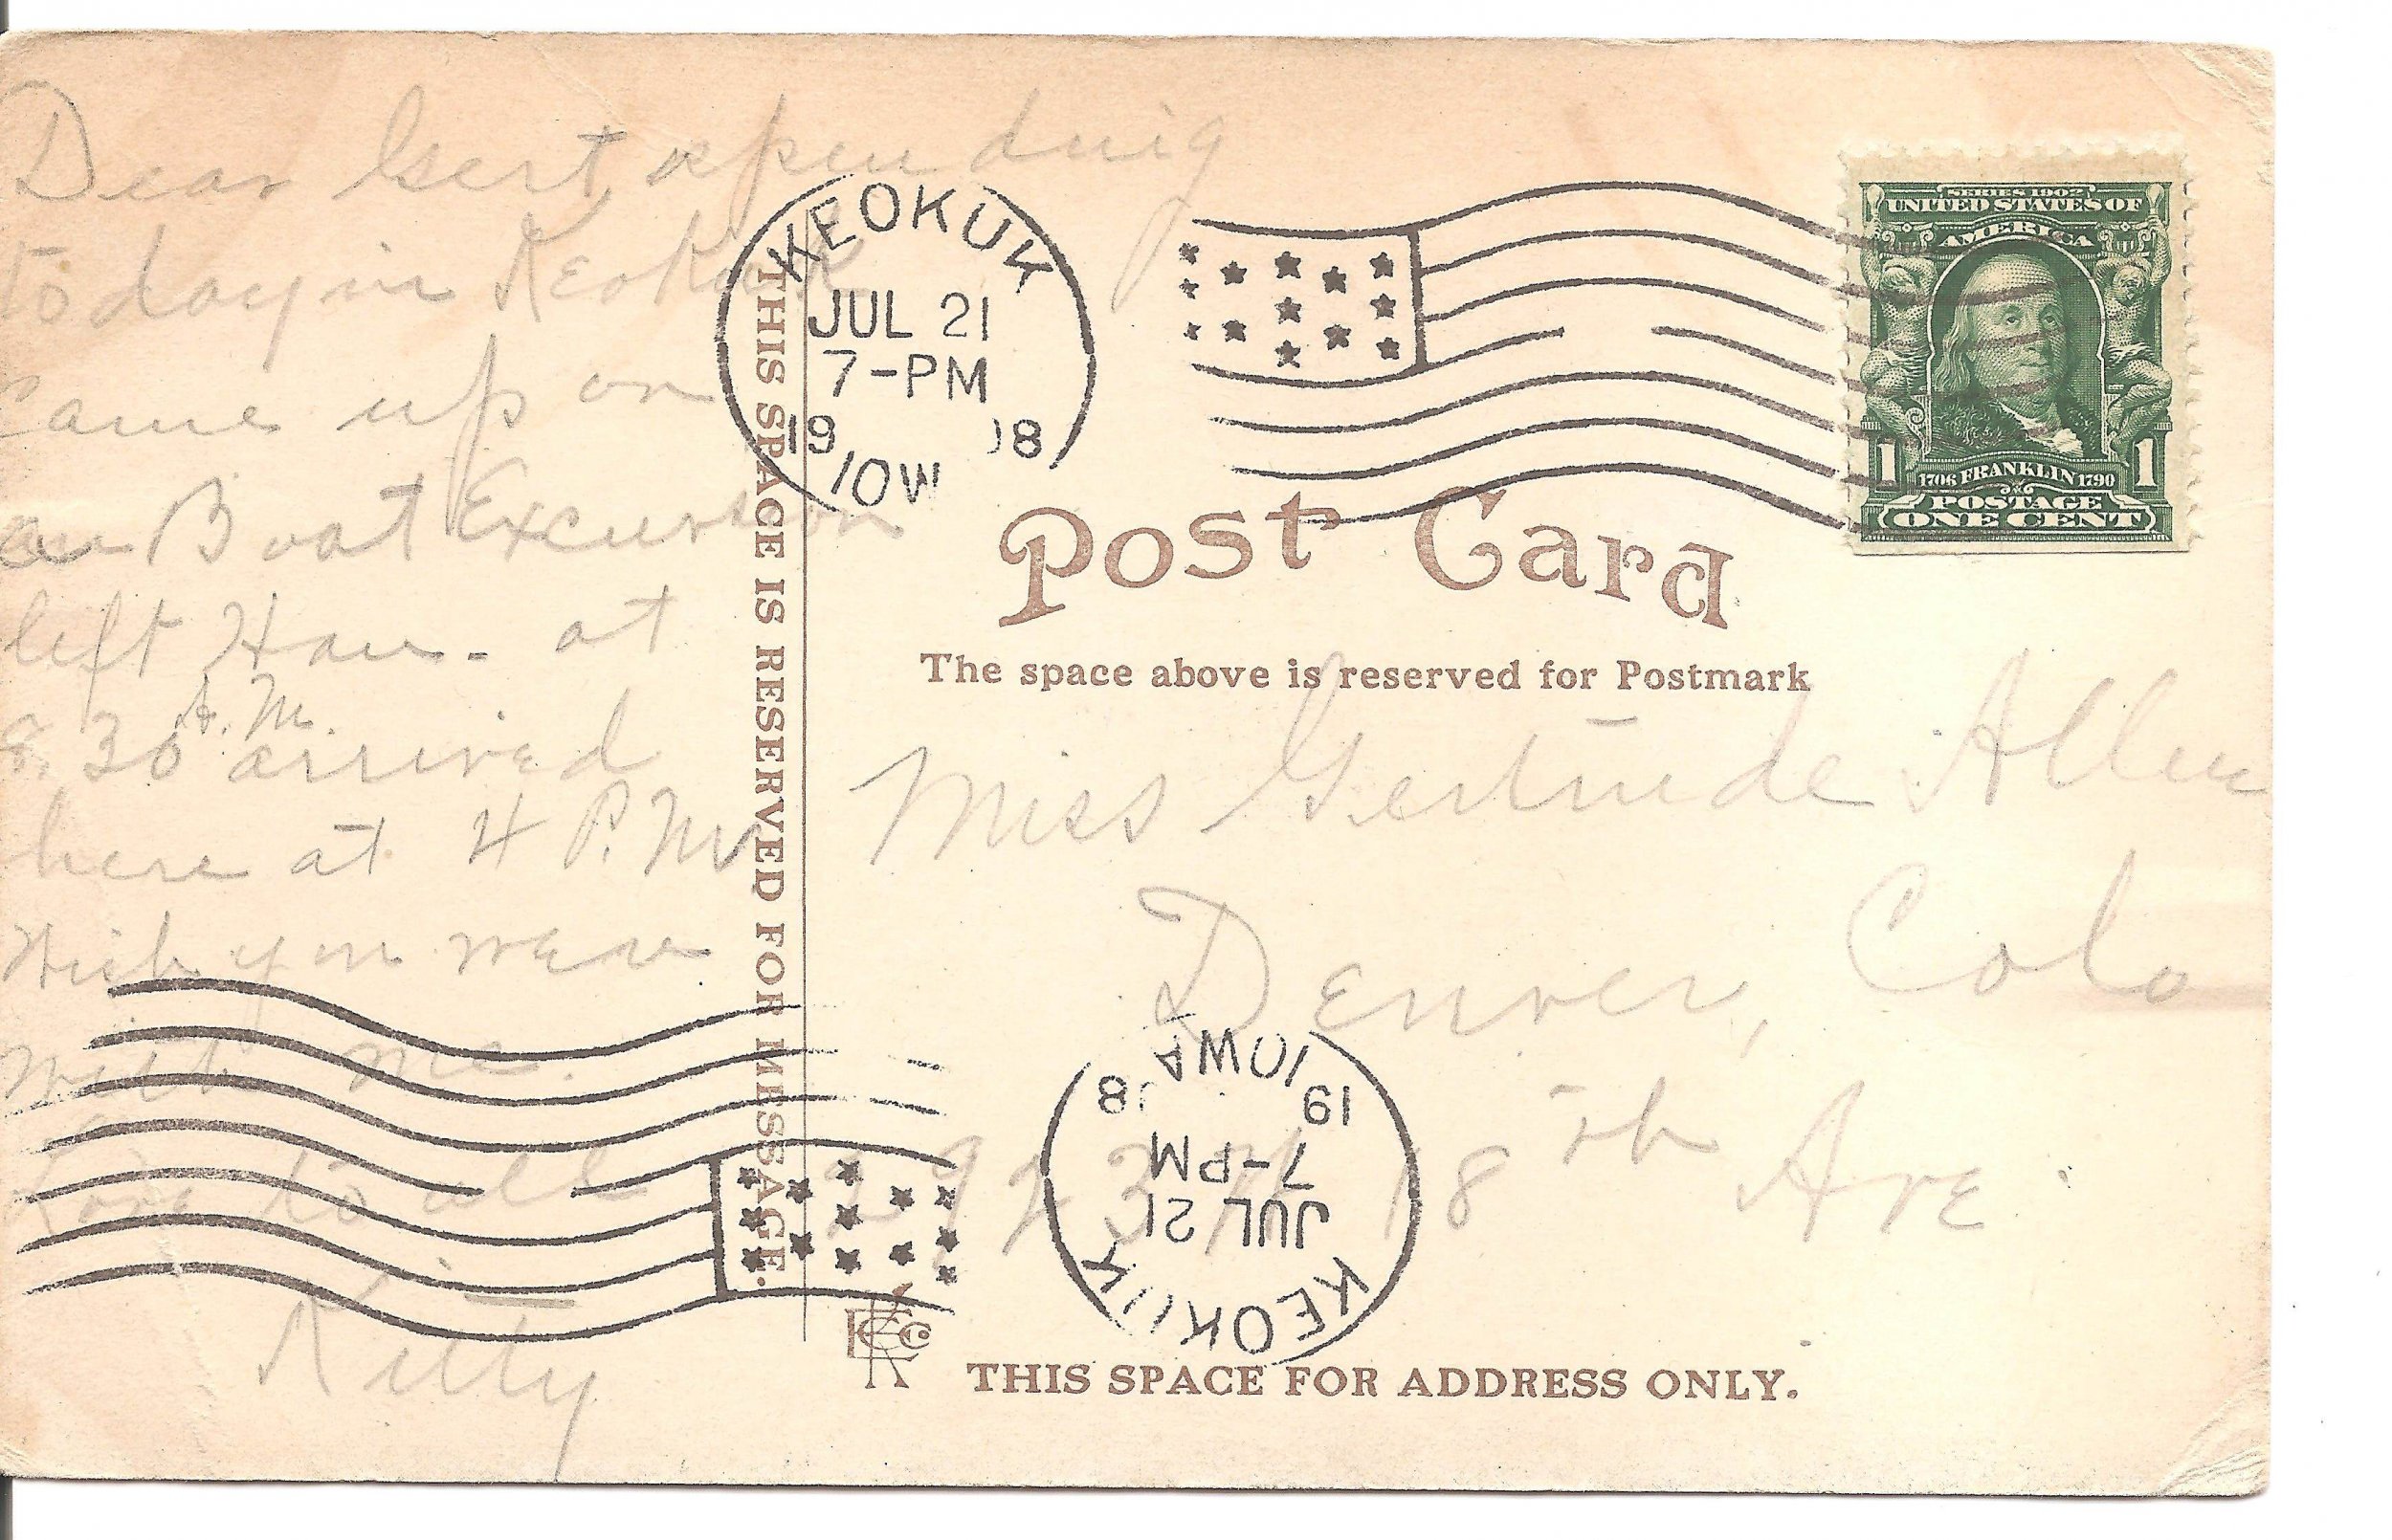 Dear Gert, spending
to day in Keokuk
Came up on
an Boat Excursion
left Han. at
8:30 A.M. arrived
here at 4 P.M.
Wish you were
with me.
Love to all
Kitty
THIS SPACE IS RESERVED FOR MESSAGE.
KEOKUK
JUL 21
7-PM
19 08
IOW
SERIES 1902
UNITED STATES OF
AMERICA
1 1
1706 FRANKLIN 1790
POSTAGE
ONE CENT
Post Card
The space above is reserved for Postmark
Miss Gertrude Allen
Denver, Colo
2923 18th Ave.
KEOKUK
JUL 21
7-PM
19 8
IOWA
THIS SPACE FOR ADDRESS ONLY.